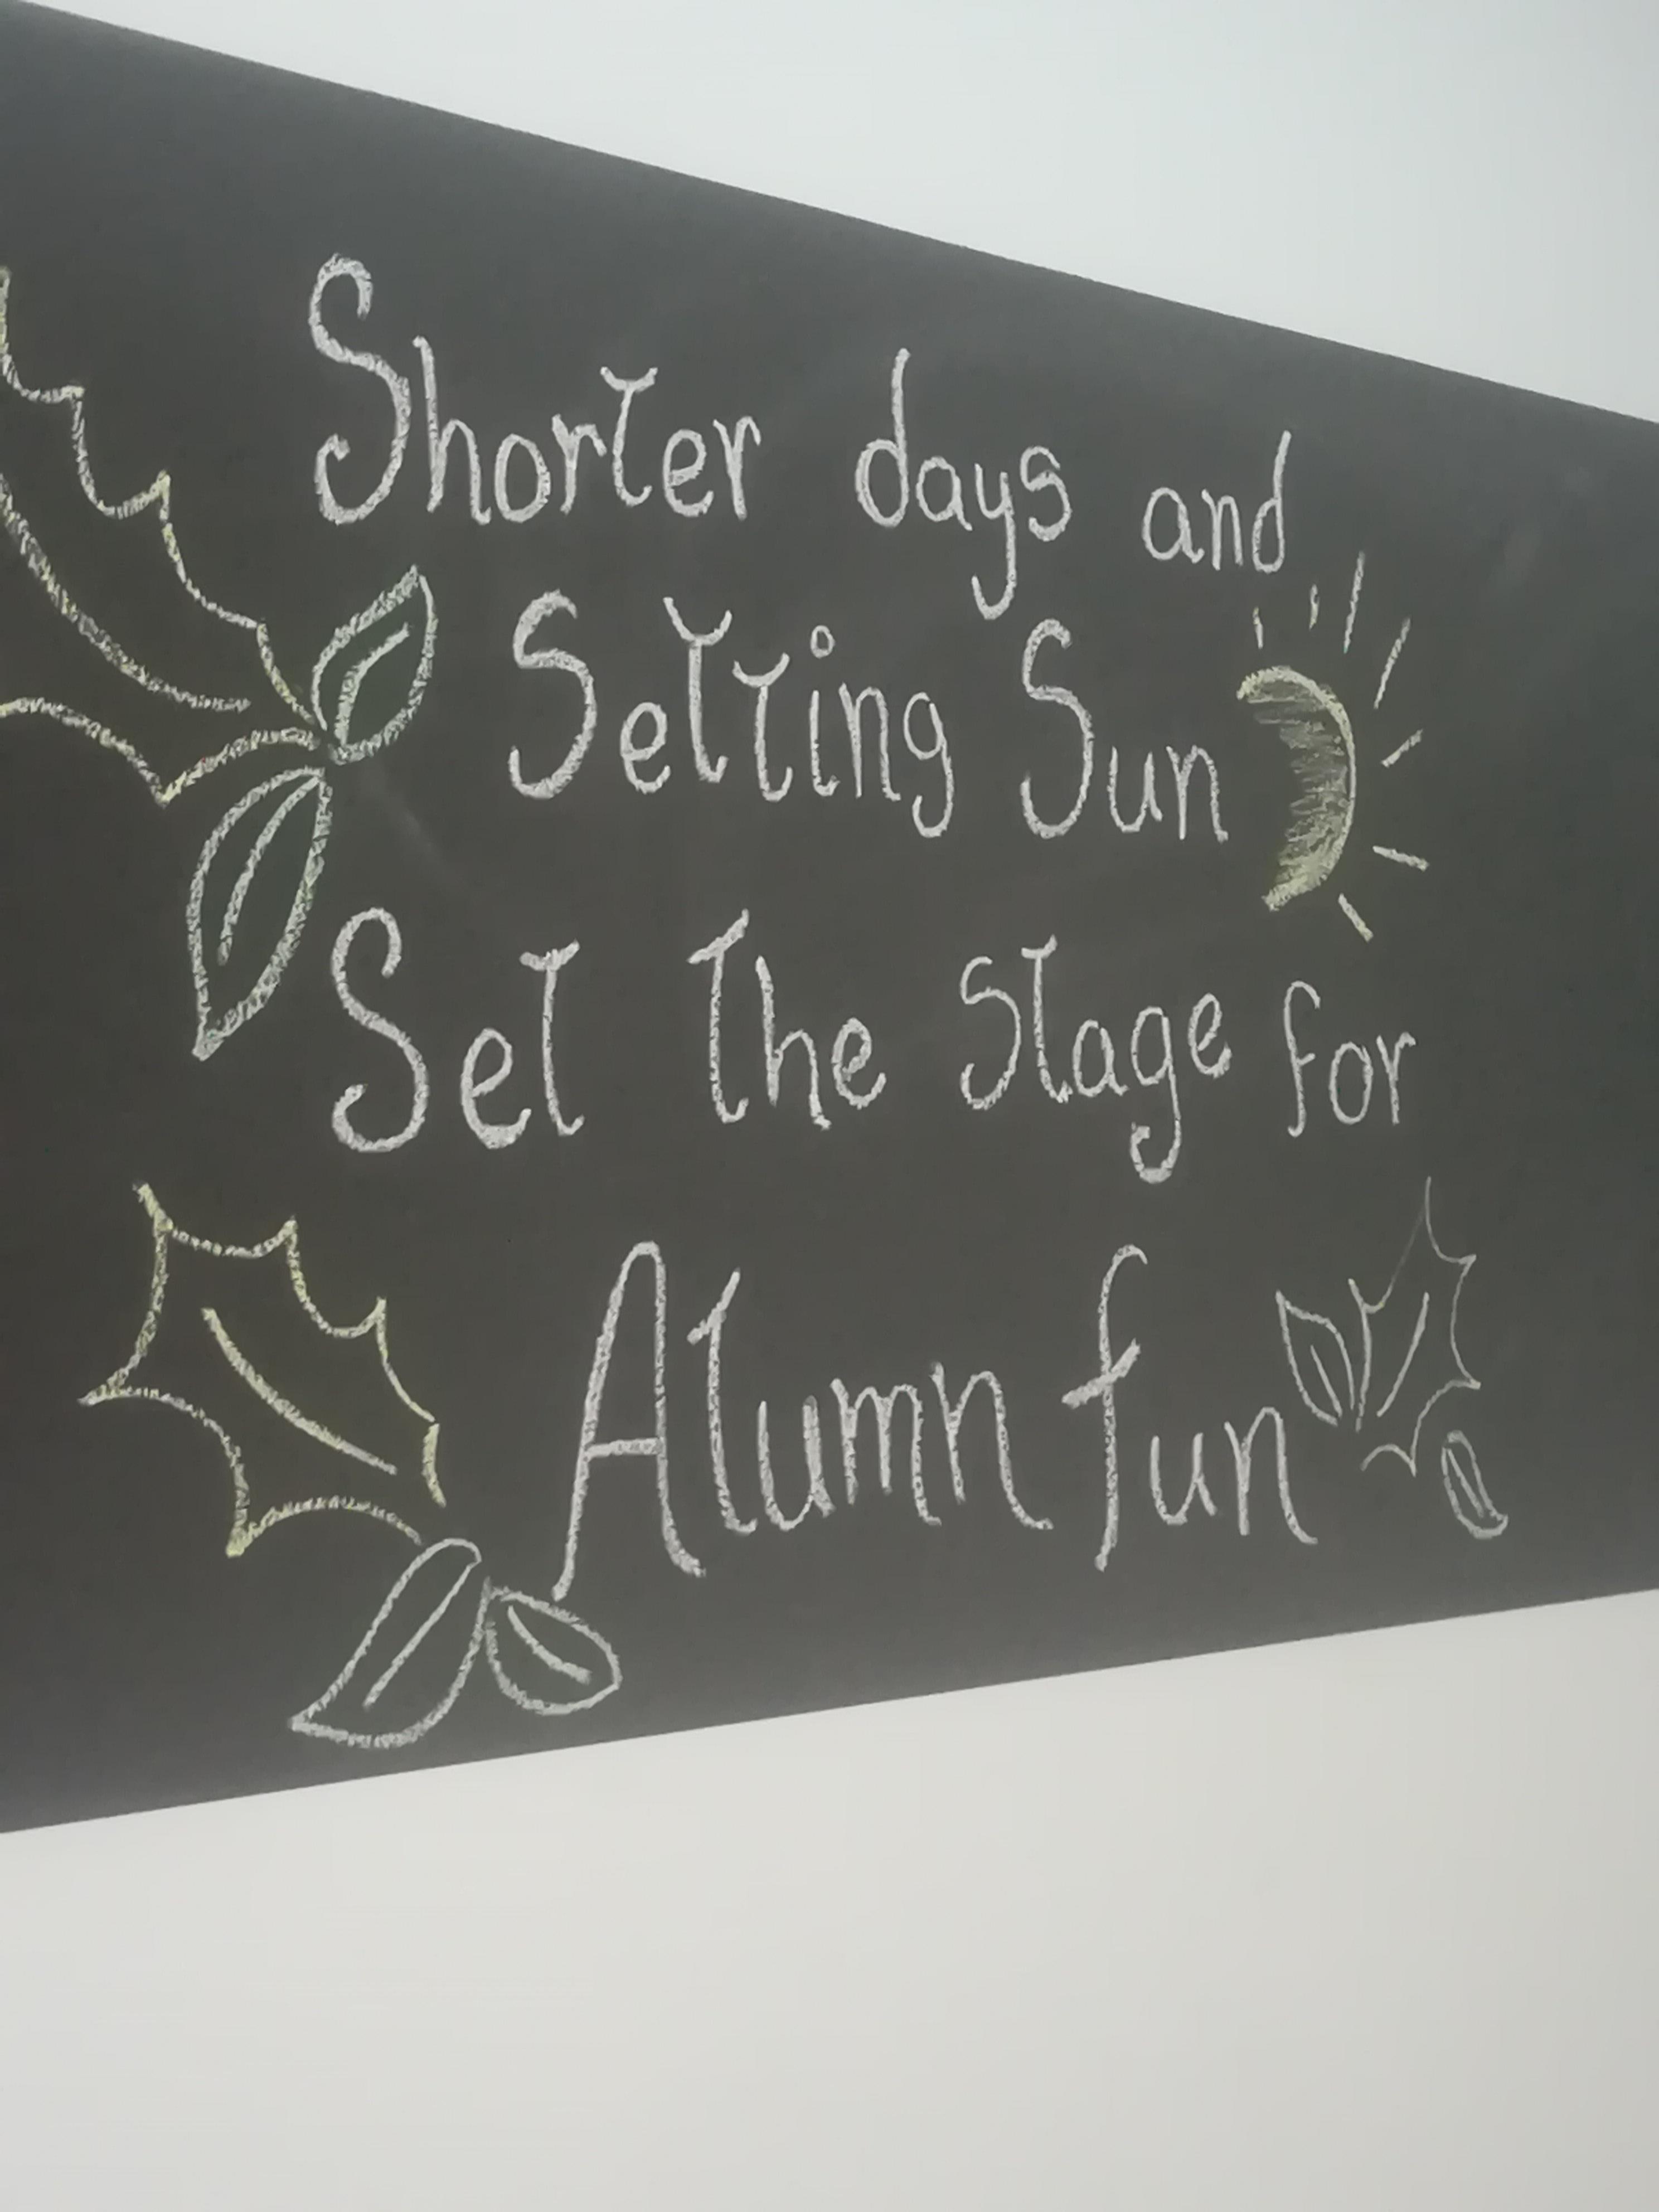 Shorter days and
Setting Sun
Set the Stage for
Atumn fun